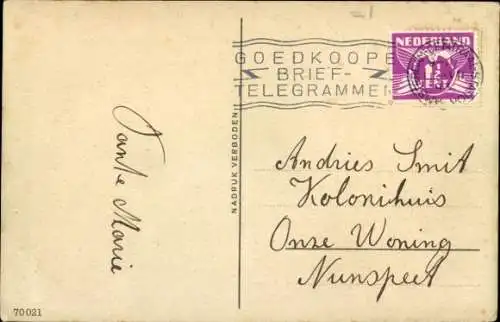 GOEDKOOPE
BRIEF-
TELEGRAMMEN
NEDERLAND
1½
CENT
Tante Marie
NADRUK VERBODEN
Andries Smit
Kolonihuis
Onze Woning
Nunspeet
70021